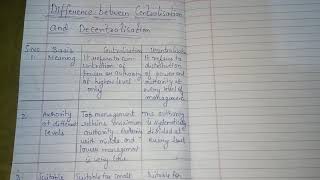 Difference between Centralisation
and Decentralisation
S.no Basis Centralisation Decentralisation
1. Meaning It refers to con- It refers to
distribution
authority of power and
at higher level authority at
only every level of
management
2. Authority Top management The authority
at different retains maximum is systematically
levels authority divided at
middle and every level
lower management
is very low
3. Suitable Suitable for small Suitable for